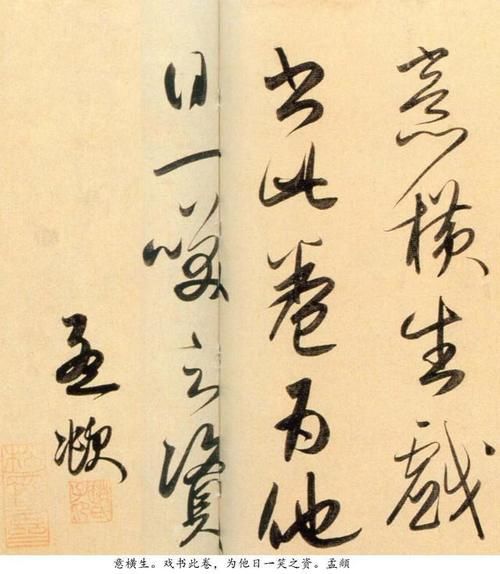 意橫生戲
书此卷为他
日一笑之資
孟頫
意横生。戏书此卷，为他日一笑之资。孟頫